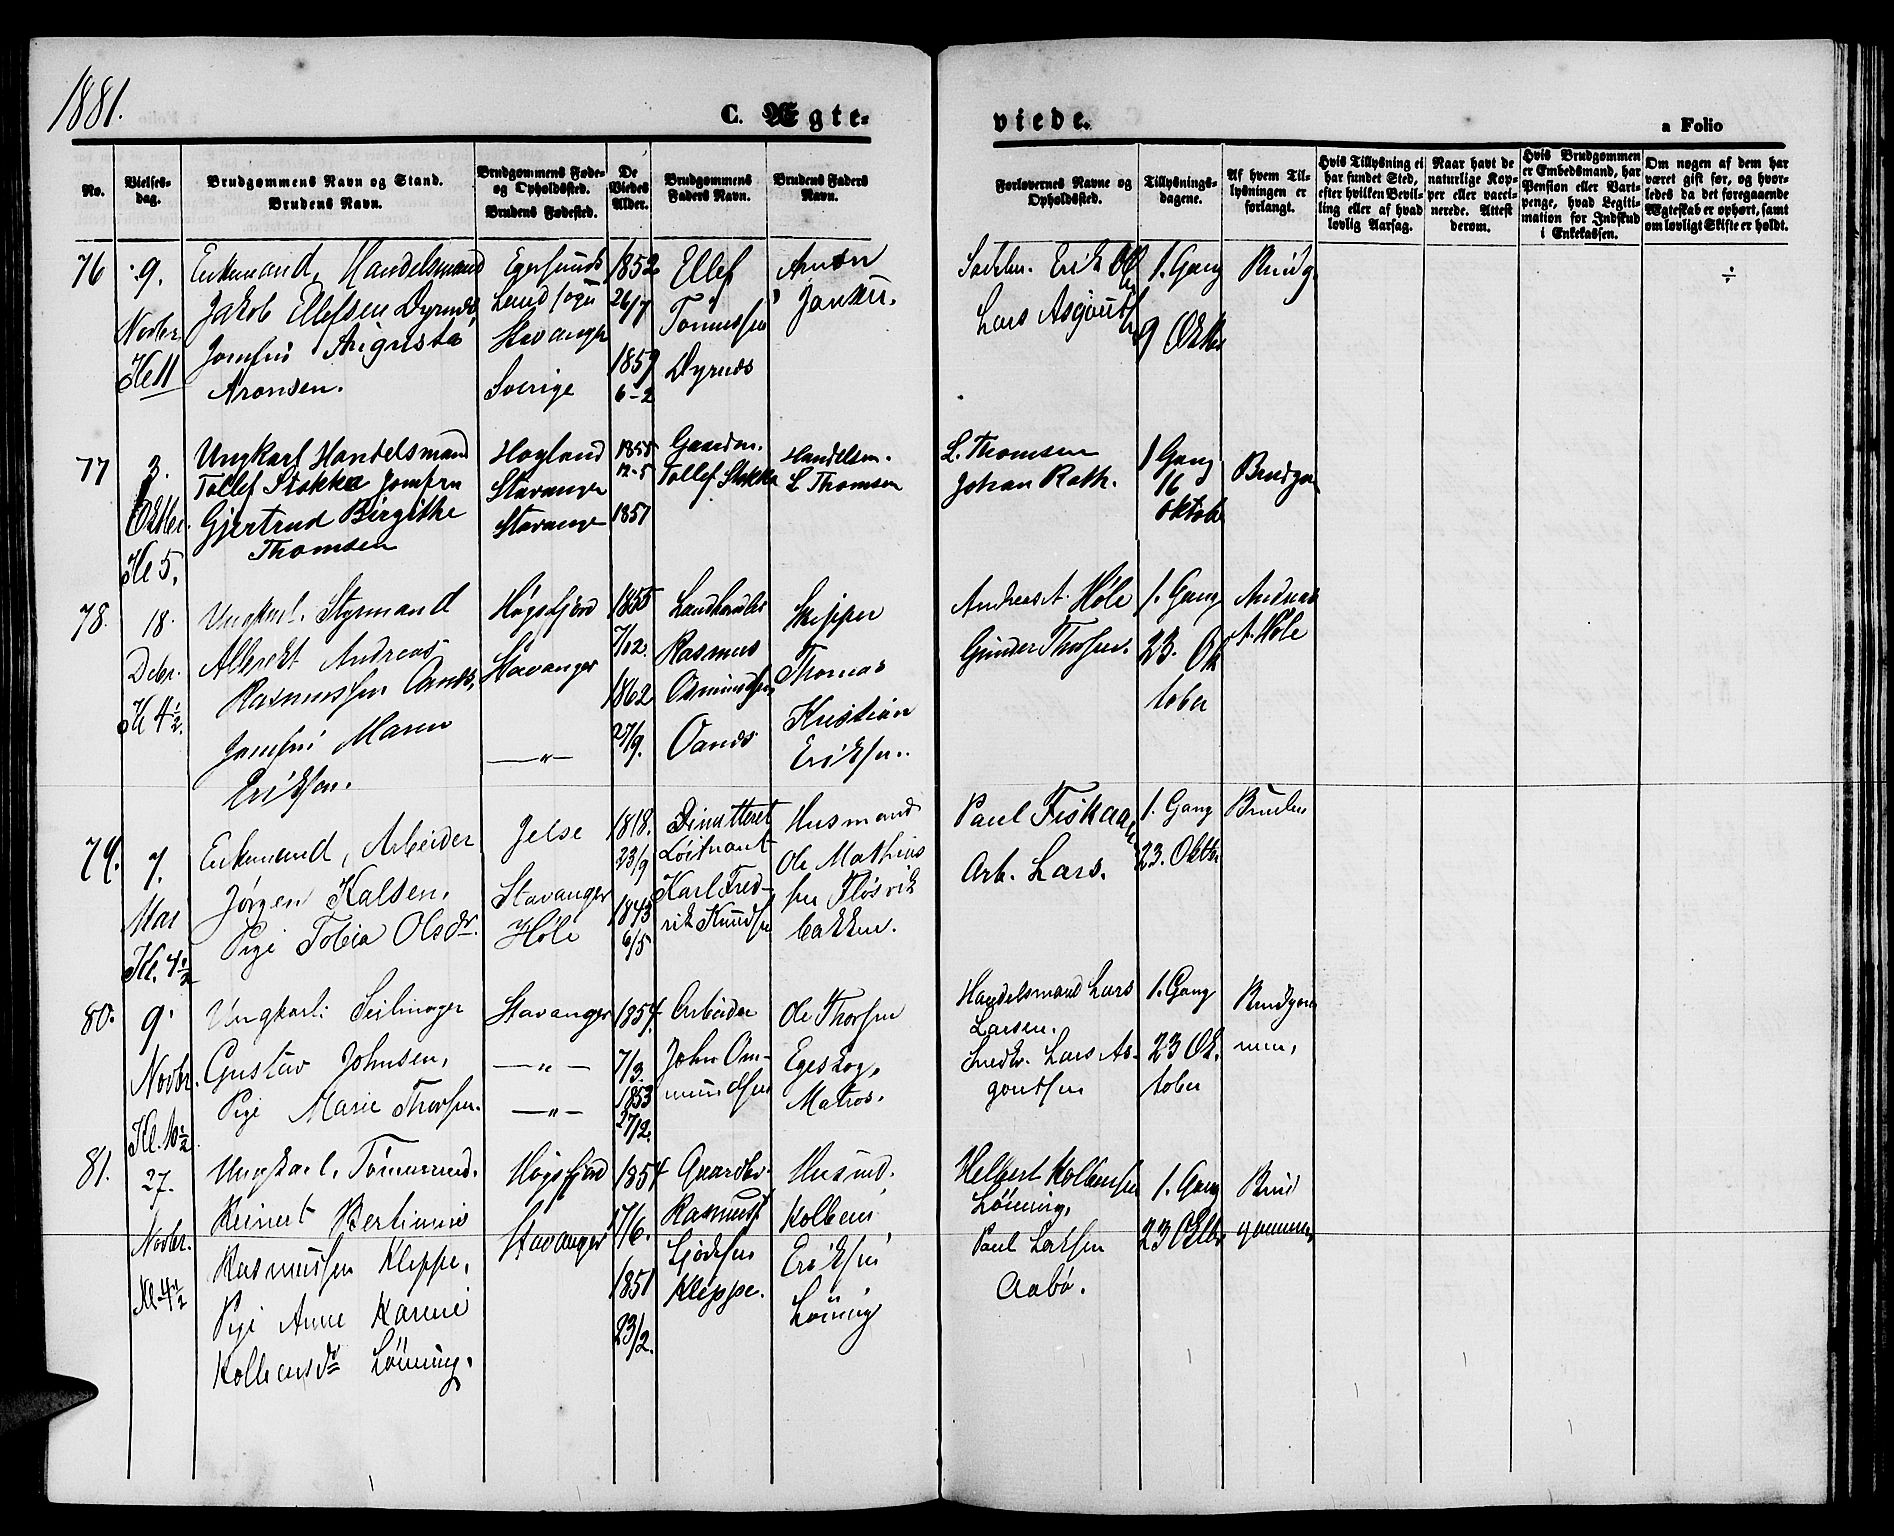 1881.
C. Ægte-
viede.
a Folio
No.
Vielses-
dag.
Brudgommens Navn og Stand.
Brudens Navn.
Brudgommens Føde-
og Opholdssted.
Brudens Fødested.
De
Viedes
Alder.
Brudgommens
Faders Navn.
Brudens Faders
Navn.
Forlovernes Navne og
Opholdssted.
Tillysnings-
dagene.
Af hvem Til-
lysningen er
forlangt.
Hvis Tillysning ei
har fundet Sted,
efter hvilken Bevil-
ling eller af hvad
lovlig Aarsag.
Naar havt de
naturlige Kop-
per eller vacci-
nerede. Attest
derom.
Hvis Brudgommen
er Embedsmand, har
Pension eller Vart-
penge, hvad Legiti-
mation for Indskud
i Enkekassen.
Om nogen af dem har
været gift før, og hvor-
ledes da det foregaaende
Ægteskab er ophørt, samt
om lovligt Skifte er holdt.
76
9.
Novbr.
Kl 11
Enkemand, Handelsmand
Jakob Ellefsen Dyrnes,
Jomfru Augusta
Aronsen.
Egersunds
Landsogn
Stavanger
Sverige
1852
26/7
1859
6-2
Ellef
Tønnessen
Dyrnes
Aron
Jansen.
Erik
Lars Asgautsen
1. Gang
9 Oktbr
Brudg.
÷
77
3.
Oktbr.
Kl 5.
Ungkarl Handelsmand
Tollef Stokka Jomfru
Gjertrud Birgithe
Thomsen
Høyland
Stavanger
Stavanger
1855
12-5
1857
Gaardm.
Tollef Stokka
Handelsm.
L Thomsen
L. Thomsen
Johan Rath.
1 Gang
16
Oktob
Brudgom
78.
18.
Debr.
Kl 4½.
Ungkarl. Styrmand
Albrekt Andreas
Rasmussen Oanes,
Jomfru Maren
Eriksen.
Høgsfjord
Stavanger
—„—
1855
7/02.
1862
27/9.
Landhandler
Rasmus
Osmundsen
Oanes
Skipper
Thomas
Kristian
Eriksen.
Andreas A. Høle
Gunder Thorsen.
1. Gang
23. Ok
tober
Andreas
A. Høle
79.
7.
Mai
Kl. 4½
Enkemand, Arbeider
Jørgen Kalsen,
Pige Tobia Olsdr.
Jelse
Stavanger
Høle
1818.
23/9
1843
6/5
Dimitteret
Løitnant
Karl Fred-
rik Knudsen
Husmand
Ole Mathias
sen Fløsvik
bakken.
Paul Fiskaa
Arb. Lars.
1. Gang
23. Oktbr
Bruden
80.
9.
Novbr.
Kl. 10½
Ungkarl: Seilmager
Gustav Johnsen,
Pige Marie Thorsen.
Stavanger
—„—
—„—
1857.
7/3.
1853
27/2.
Arbeider
John Om-
mundsen
Ole Thorsen
Egeskog,
Matros.
Handelsmand Lars
Larsen.
Snedkr. Lars As-
gautsen
1. Gang
23 Ok.
tober
Brudgom
men,
81.
27.
Novbr.
Kl 4½
Ungkarl, Tømmermd.
Reinert Bertinius
Rasmussen Kleppe,
Pige Anne Karine
Kolbensdr Lønning.
Høgsfjord
Stavanger
1854
17/6.
1851
23/2.
Gaardbr.
Rasmus
Gjødesen
Kleppe.
Husmd.
Kolben
Eriksen
Lønning
Helbert Kolbensen
Lønning,
Paul Larsen
Aabø.
1. Gang
23 Oktbr.
Brud
gommen